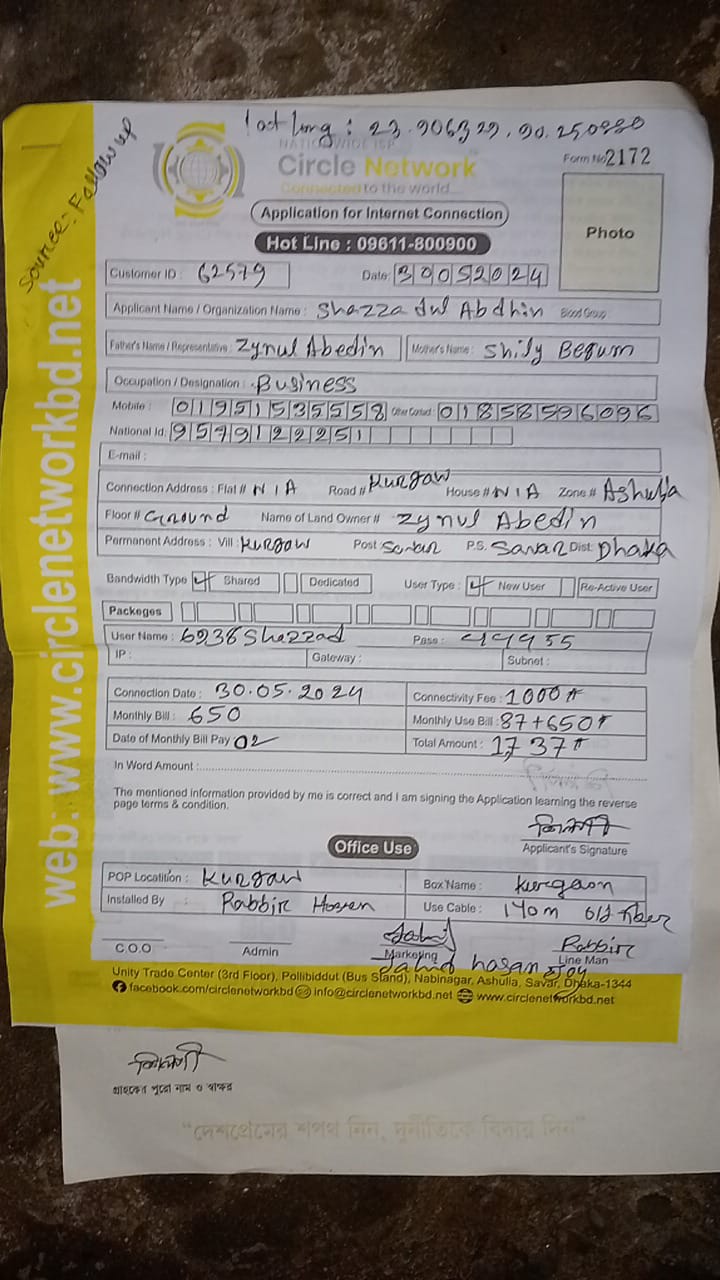 lat long : 23.906329, 90.250880
Source: Follow up
NATIONWIDE ISP
Circle Network
Connected to the world...
Form No 2172
Application for Internet Connection
Photo
Hot Line : 09611-800900
Customer ID : 62579 Date: 30052024
Applicant Name / Organization Name : Shazzadul Abdhin Blood Group
Father's Name / Representative : Zynul Abedin Mother's Name : Shily Begum
Occupation / Designation : Business
Mobile : 01951535558 Other Contact : 01858596096
National Id: 9579122251
E-mail :
Connection Address : Flat # N/A Road # Kurgaw House # N/A Zone # Ashulia
Floor # Ground Name of Land Owner # Zynul Abedin
Permanent Address : Vill : Kurgaw Post Savar P.S. Savar Dist: Dhaka
Bandwidth Type Shared Dedicated User Type : New User Re-Active User
Packeges
User Name : 6238Shazzad Pass : 44955
IP : Gateway : Subnet :
Connection Date : 30.05.2024 Connectivity Fee : 1000৳
Monthly Bill : 650 Monthly Use Bill : 87+650৳
Date of Monthly Bill Pay 02 Total Amount : 1737৳
In Word Amount :
The mentioned information provided by me is correct and I am signing the Application learning the reverse
page terms & condition.
Applicant's Signature
Office Use
POP Locatition : Kurgaw Box Name : Kurgaon
Installed By : Rabbir Hosen Use Cable : 140m old fiber
C.O.O Admin Marketing Rabbir Line Man
Jahid hasan Joy
Unity Trade Center (3rd Floor), Pollibiddut (Bus Stand), Nabinagar, Ashulia, Savar, Dhaka-1344
facebook.com/circlenetworkbd info@circlenetworkbd.net www.circlenetworkbd.net
web: www.circlenetworkbd.net
গ্রাহকের পুরো নাম ও স্বাক্ষর
"দেশপ্রেমের শপথ নিন, দুর্নীতিকে বিদায় দিন"